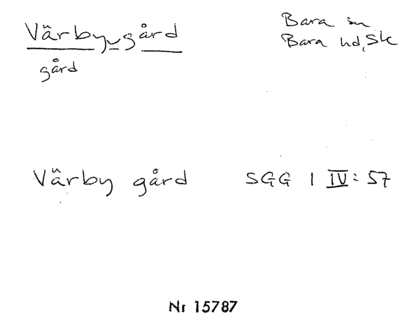 Värby gård
gård
Bara sn
Bara hd, Sk
Värby gård SGG 1 IV: 57
Nr 15787